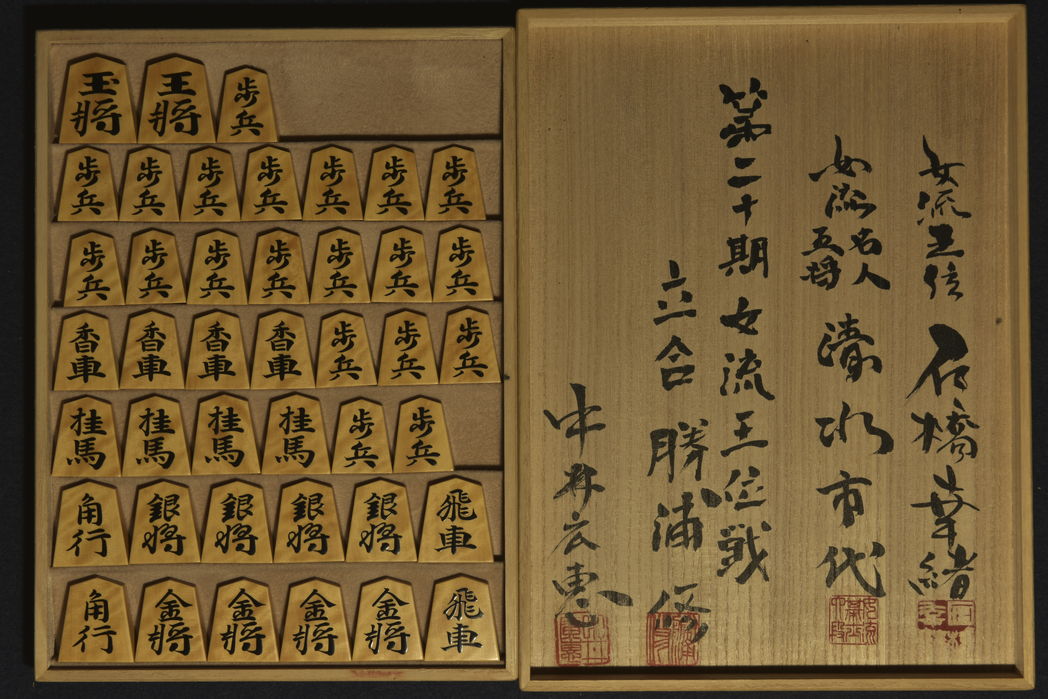 玉将 王将 歩兵
歩兵 歩兵 歩兵 歩兵 歩兵 歩兵 歩兵
歩兵 歩兵 歩兵 歩兵 歩兵 歩兵 歩兵
香車 香車 香車 香車 歩兵 歩兵 歩兵
桂馬 桂馬 桂馬 桂馬 歩兵 歩兵
角行 銀将 銀将 銀将 銀将 飛車
角行 金将 金将 金将 金将 飛車
女流王位 石橋幸緒
女流名人
王将
清水市代
第二十期女流王位戦
立合 勝浦修
中井広恵